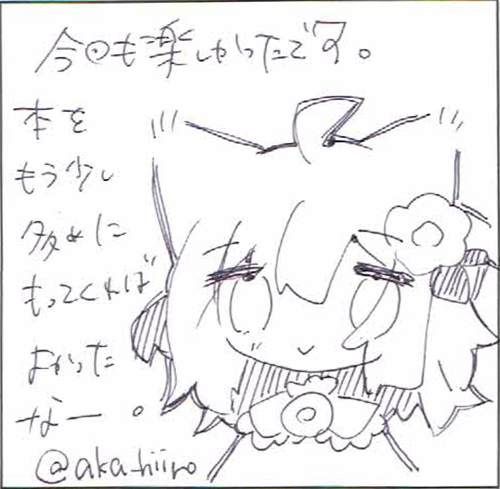 今回も楽しかったです。
本を
もう少し
多めに
もってくれば
よかった
なー。
@aka_hiiro